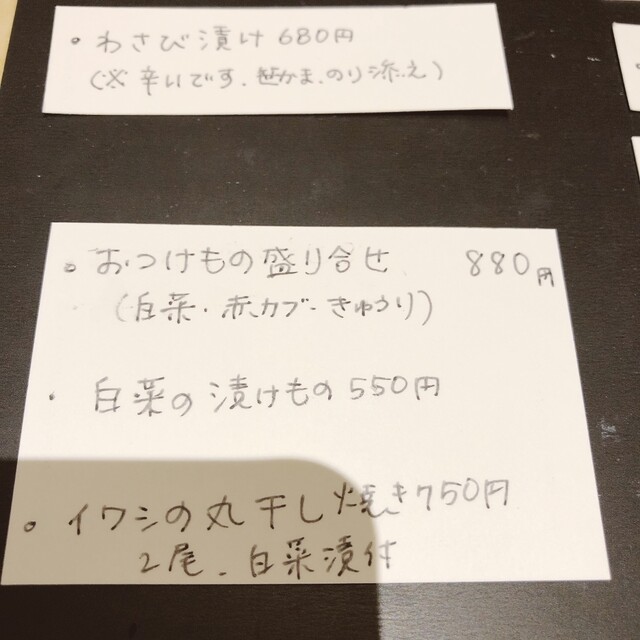 ・わさび漬け 680円
(※辛いです、笹かま、のり添え)
・おつけもの盛り合せ 880円
(白菜・赤カブ・きゅうり)
・白菜の漬けもの 550円
・イワシの丸干し焼き 750円
2尾、白菜漬付